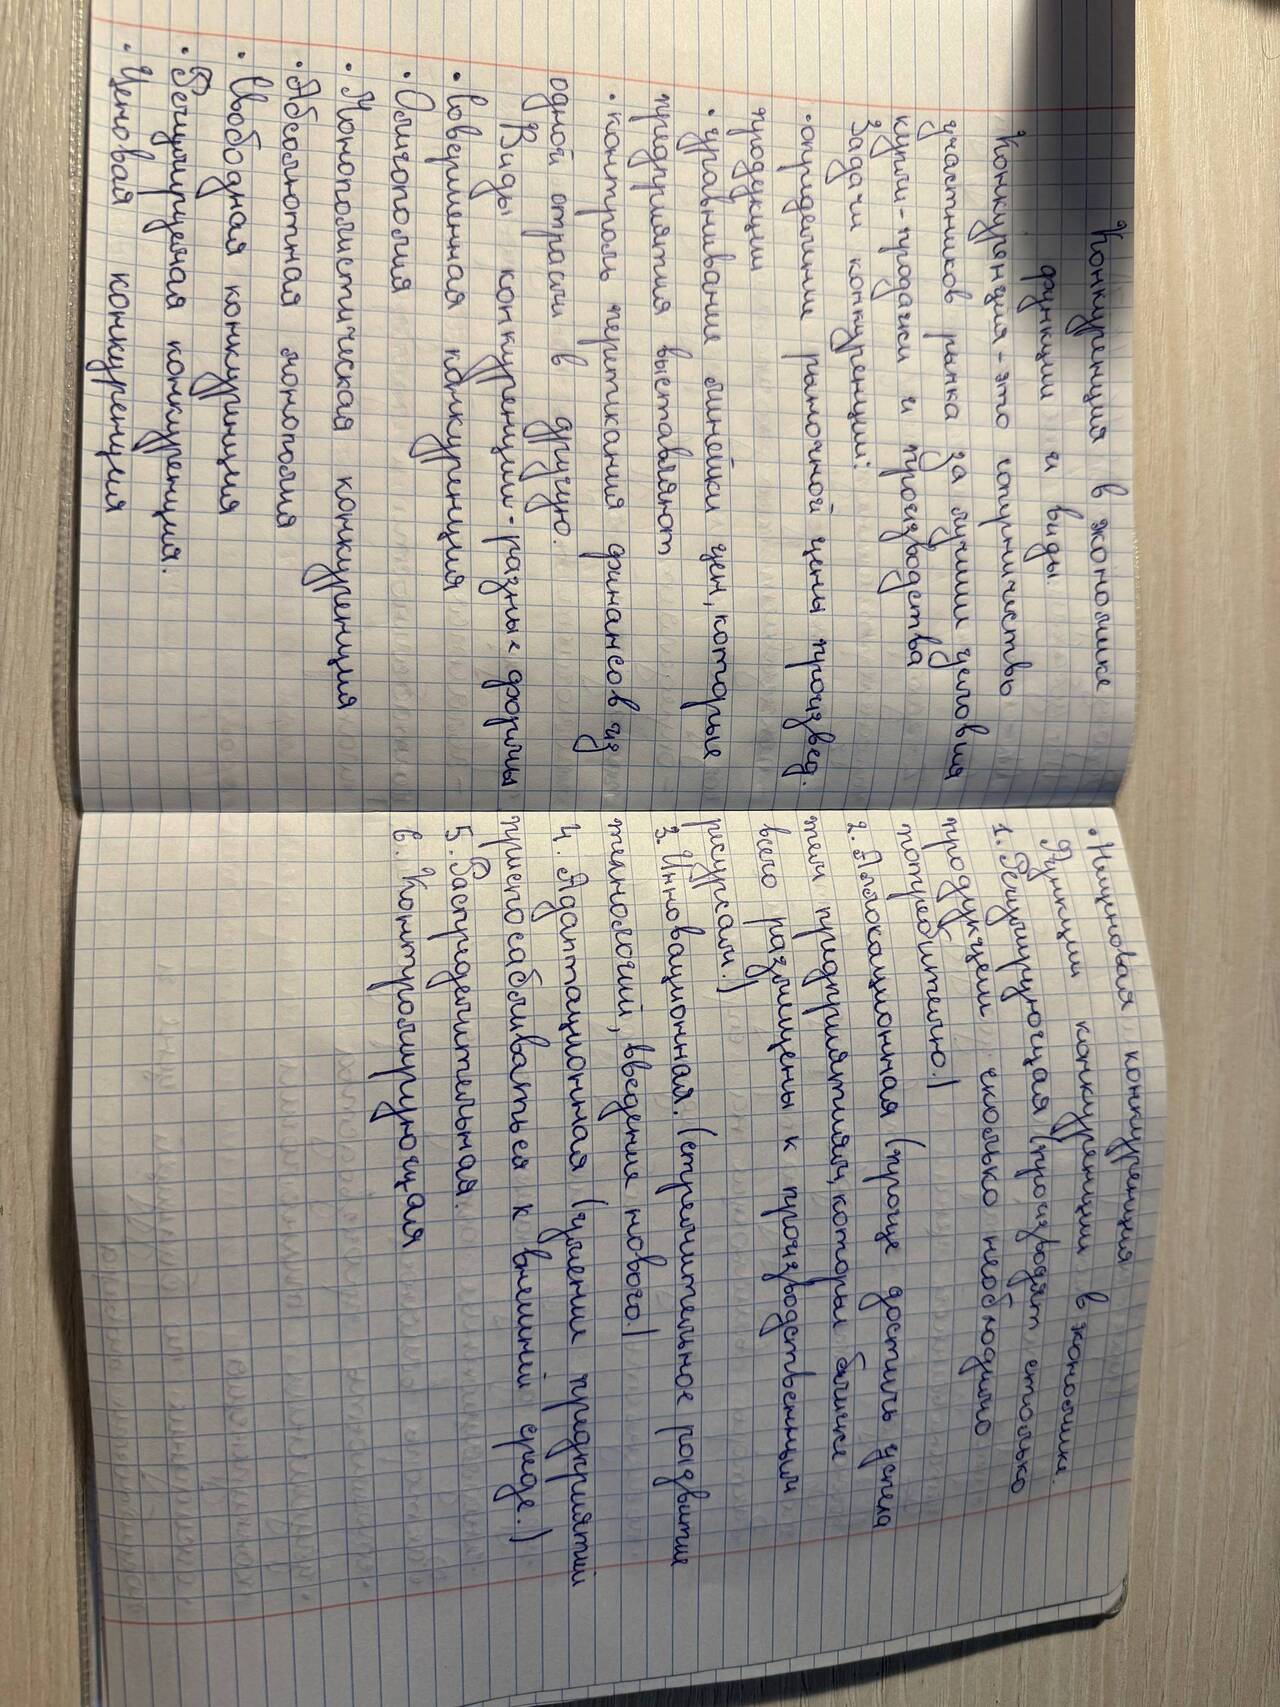 Конкуренция в экономике
функции и виды.
Конкуренция - это соперничество
участников рынка за лучшие условия
купли-продажи и производства
Задачи конкуренции:
• определение рыночной цены произвед.
продукции
• уравнивание линейки цен, которые
предприятия выставляют
• контроль перетекания финансов из
одной отрасли в другую.
Виды конкуренции - разные формы
• Совершенная конкуренция
• Олигополия
• Монополистическая конкуренция
• Абсолютная монополия
• Свободная конкуренция
• Регулируемая конкуренция.
• Ценовая конкуренция
• Неценовая конкуренция
Функции конкуренции в экономике.
1. Регулирующая (производят столько
продукции сколько необходимо
потребителю.)
2. Аллокационная (проще достичь успеха
тем предприятиям, которые ближе
всего размещены к производственным
ресурсам.)
3. Инновационная. (стремительное развитие
технологий, введение нового)
4. Адаптационная (умение предприятий
приспосабливаться к внешней среде.)
5. Распределительная.
6. Контролирующая